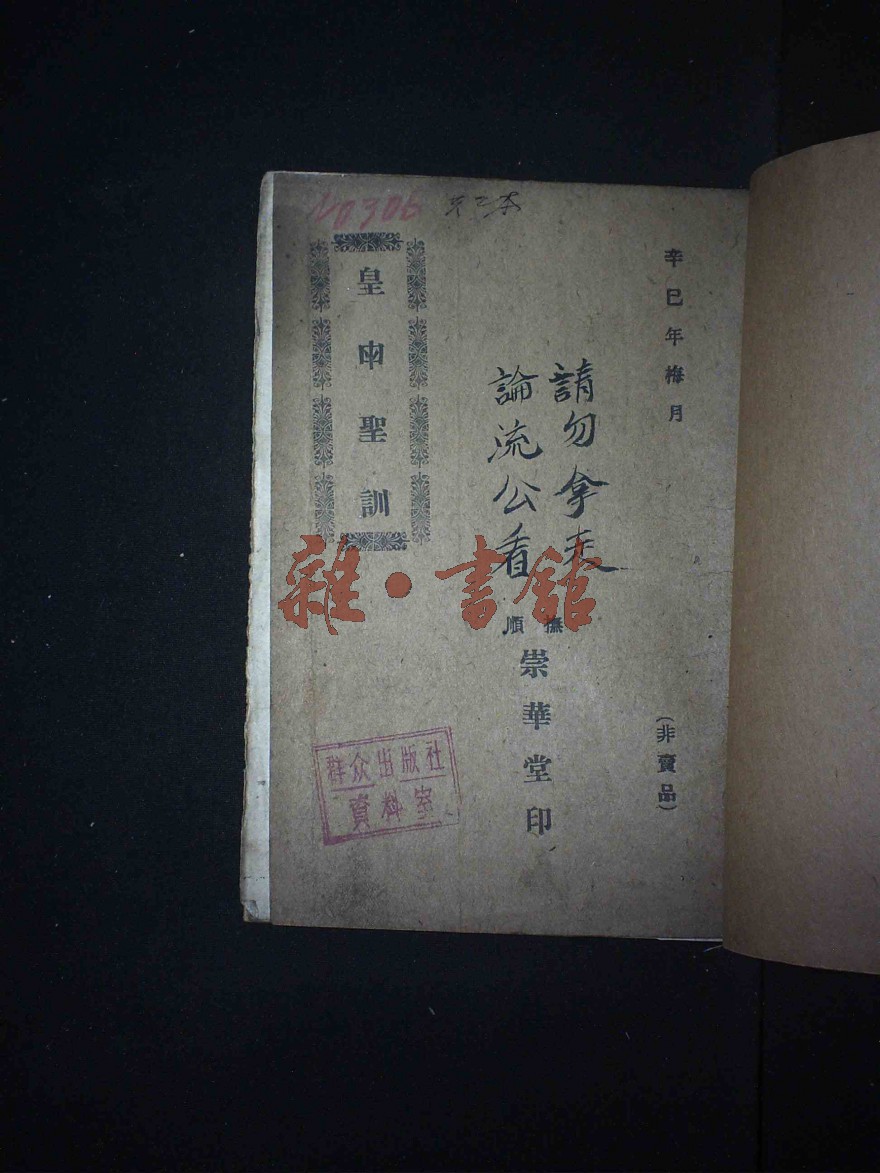 NO 306
辛巳年梅月
(非賣品)
請勿拿走
論流公看
撫順
崇華堂印
皇申聖訓
群众出版社
資料室
雜·書館